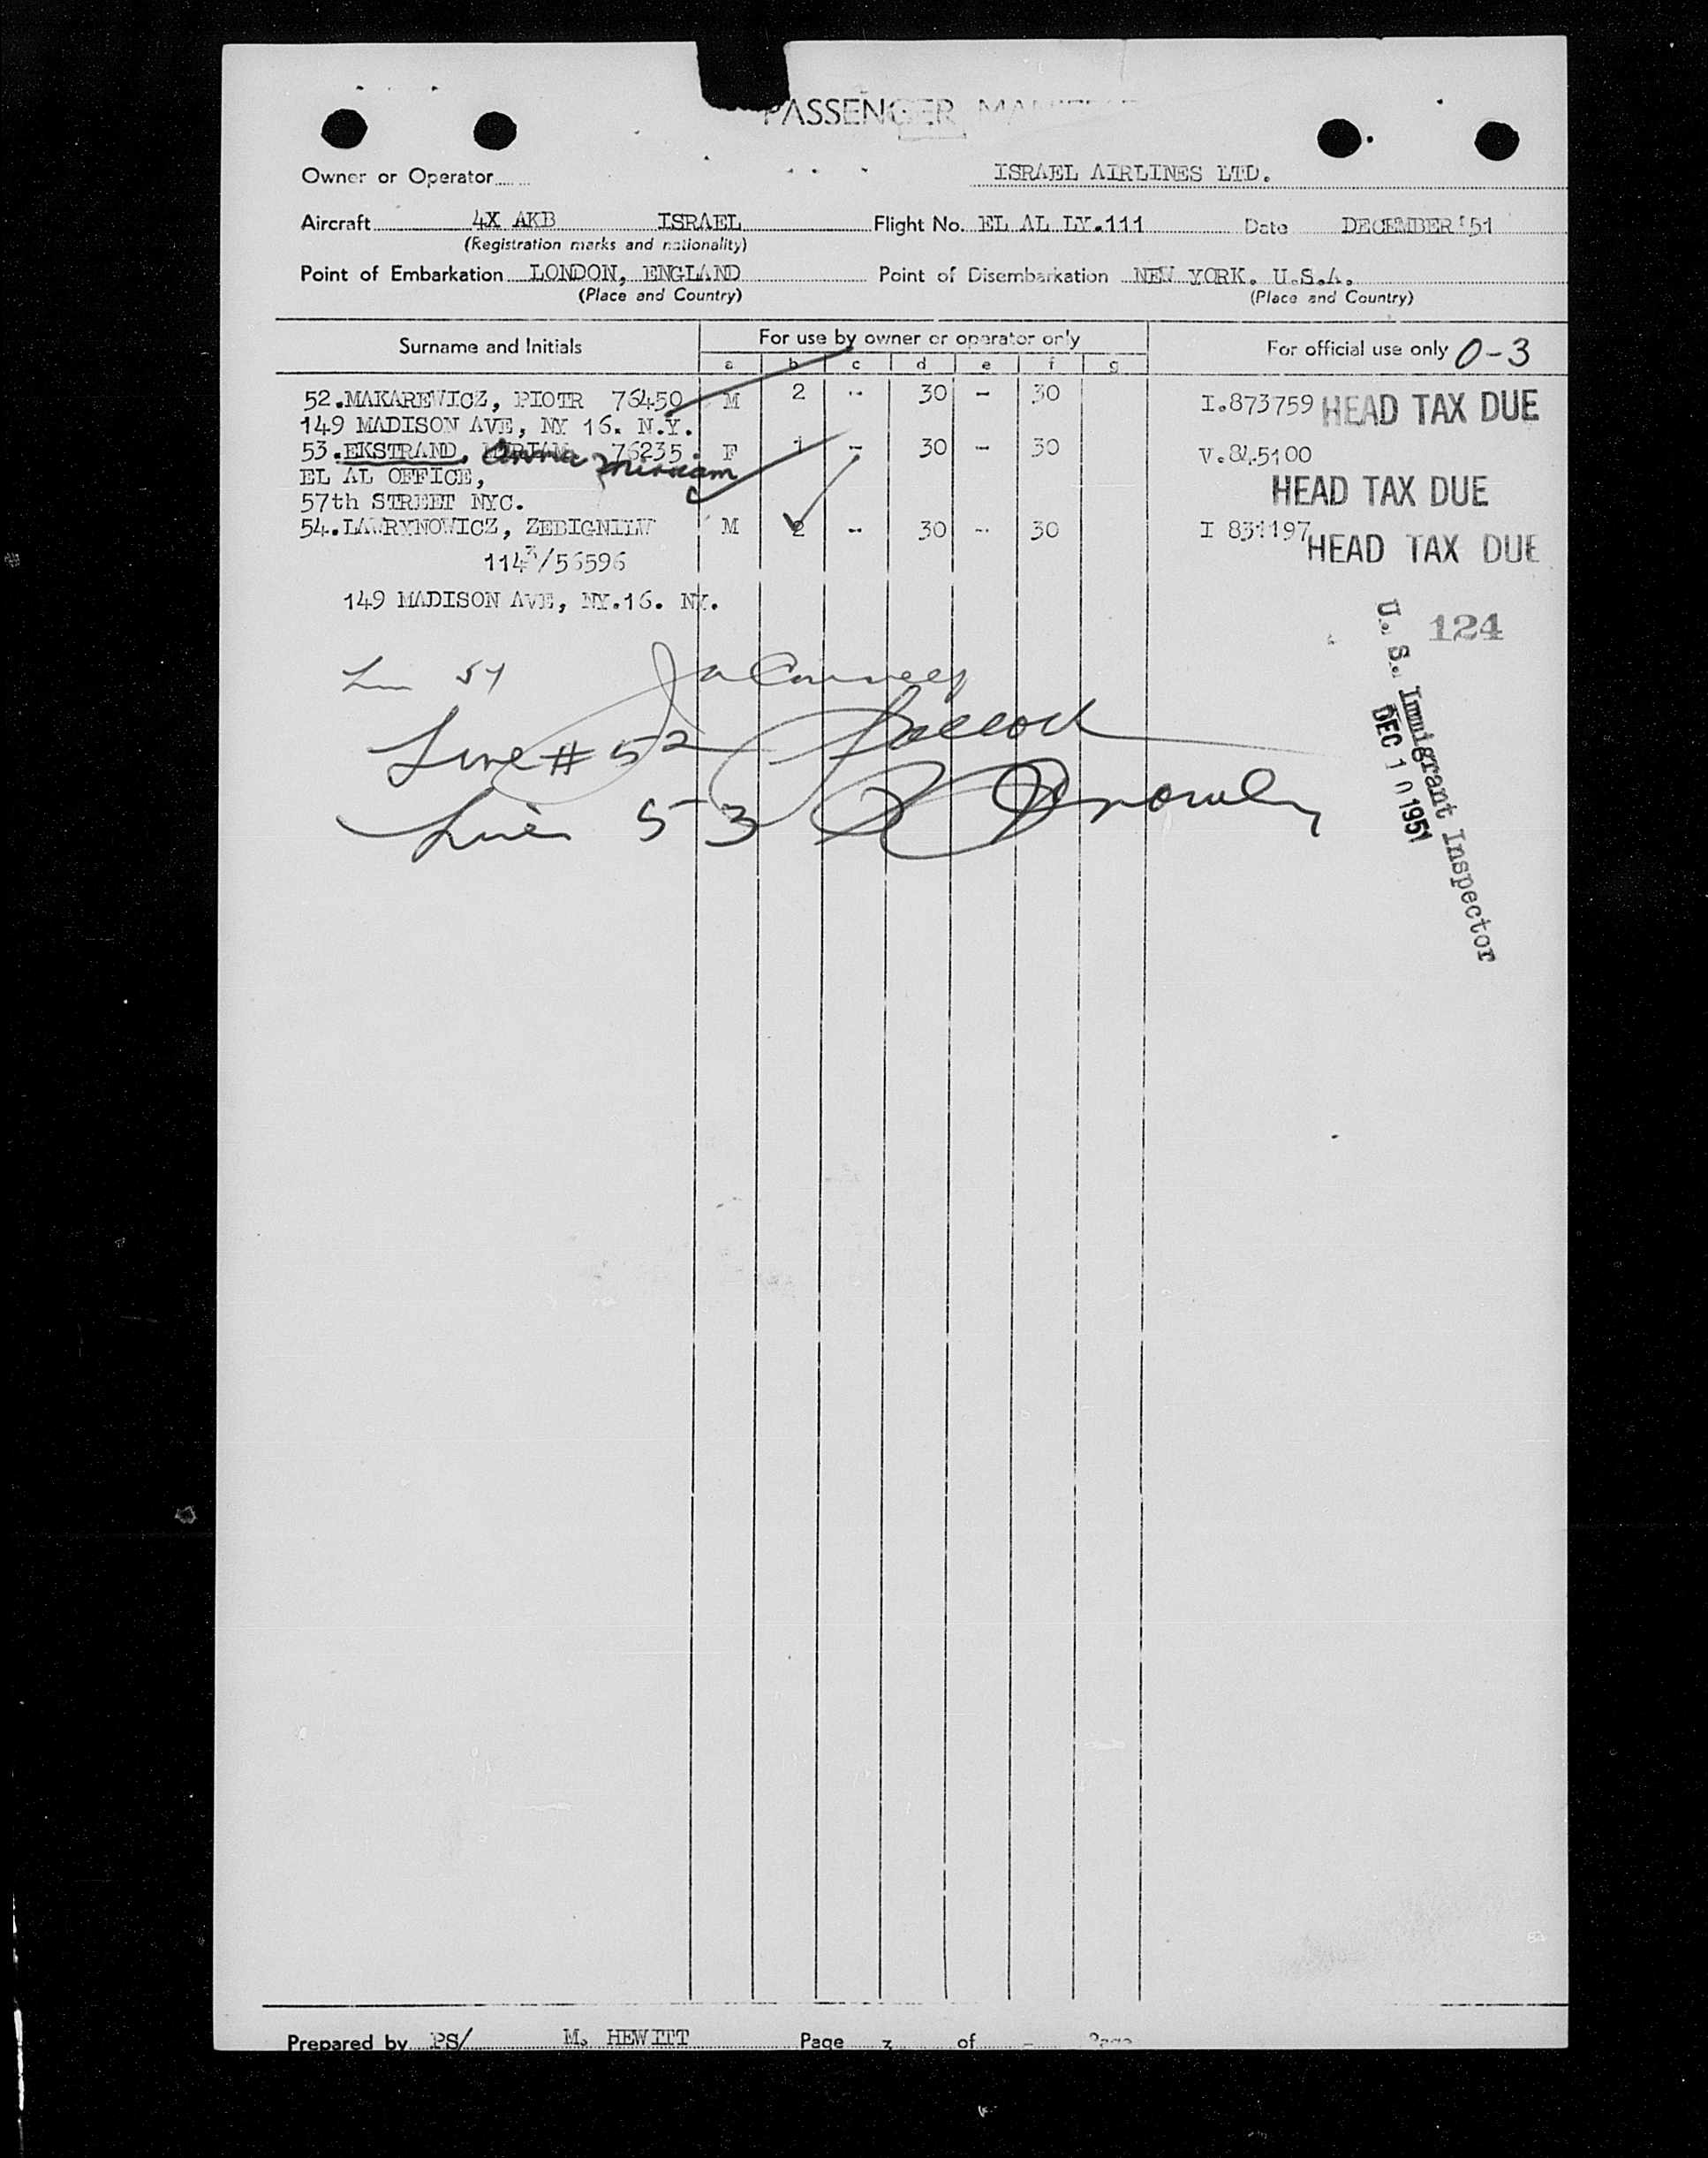 PASSENGER
Owner or Operator ISRAEL AIRLINES LTD.
Aircraft 4X AKB ISRAEL Flight No. EL AL LY.111 Date DECEMBER '51
(Registration marks and nationality)
Point of Embarkation LONDON, ENGLAND Point of Disembarkation NEW YORK. U.S.A.
(Place and Country) (Place and Country)
Surname and Initials For use by owner or operator only For official use only 0-3
a b c d e f g
52.MAKAREWICZ, PIOTR 76450 M 2 -- 30 - 30 I.873759 HEAD TAX DUE
149 MADISON AVE, NY 16. N.Y.
53.EKSTRAND, MIRIAM 76235 F 1 -- 30 - 30 V.845100
Anna Miriam
EL AL OFFICE, HEAD TAX DUE
57th STREET NYC.
54.LAWRYNOWICZ, ZEBIGNILW M 2 -- 30 -- 30 I 831197 HEAD TAX DUE
1143/56596
149 MADISON AVE, NY.16. NY.
124
54
Line # 52
Line 53
U. S. Immigrant Inspector
DEC 10 1951
Prepared by PS/ M. HEWITT Page of - Page